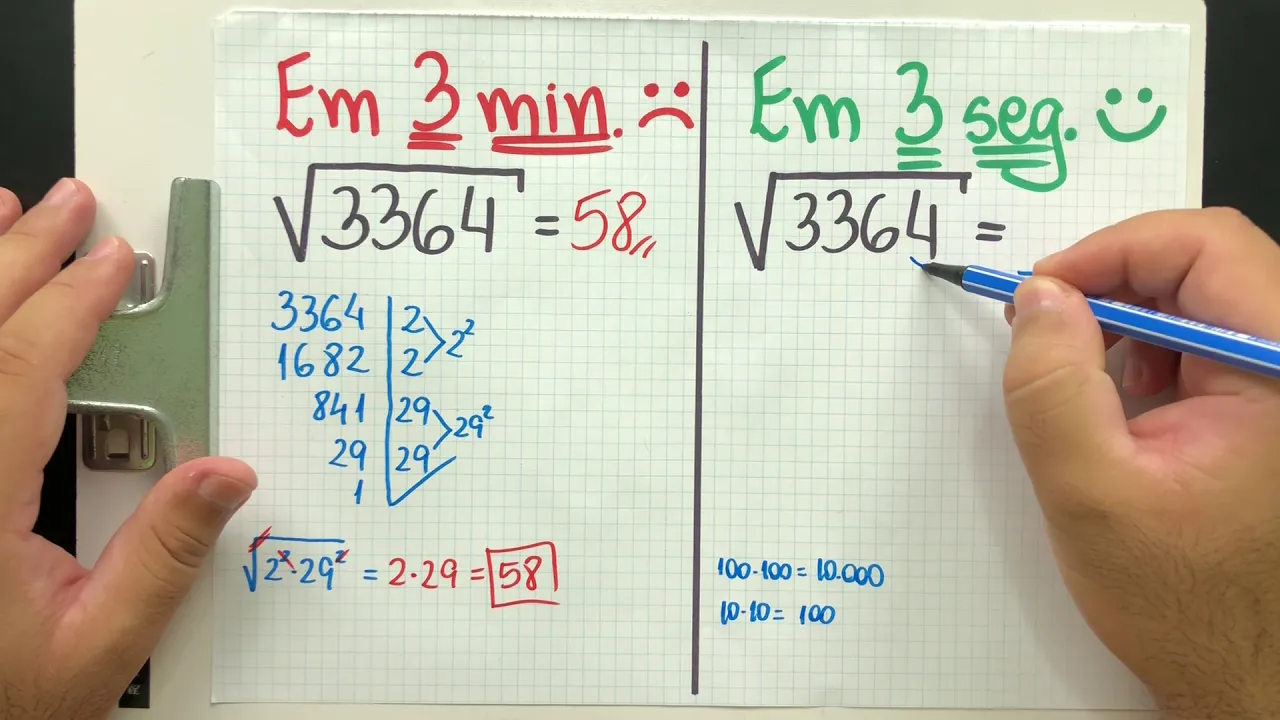 Em 3 min. :(
√3364 = 58,,
3364 | 2
1682 | 2 > 2²
841 | 29
29 | 29 > 29²
1
√2²·29² = 2·29 = 58
Em 3 seg. :)
√3364 =
100·100 = 10.000
10·10 = 100